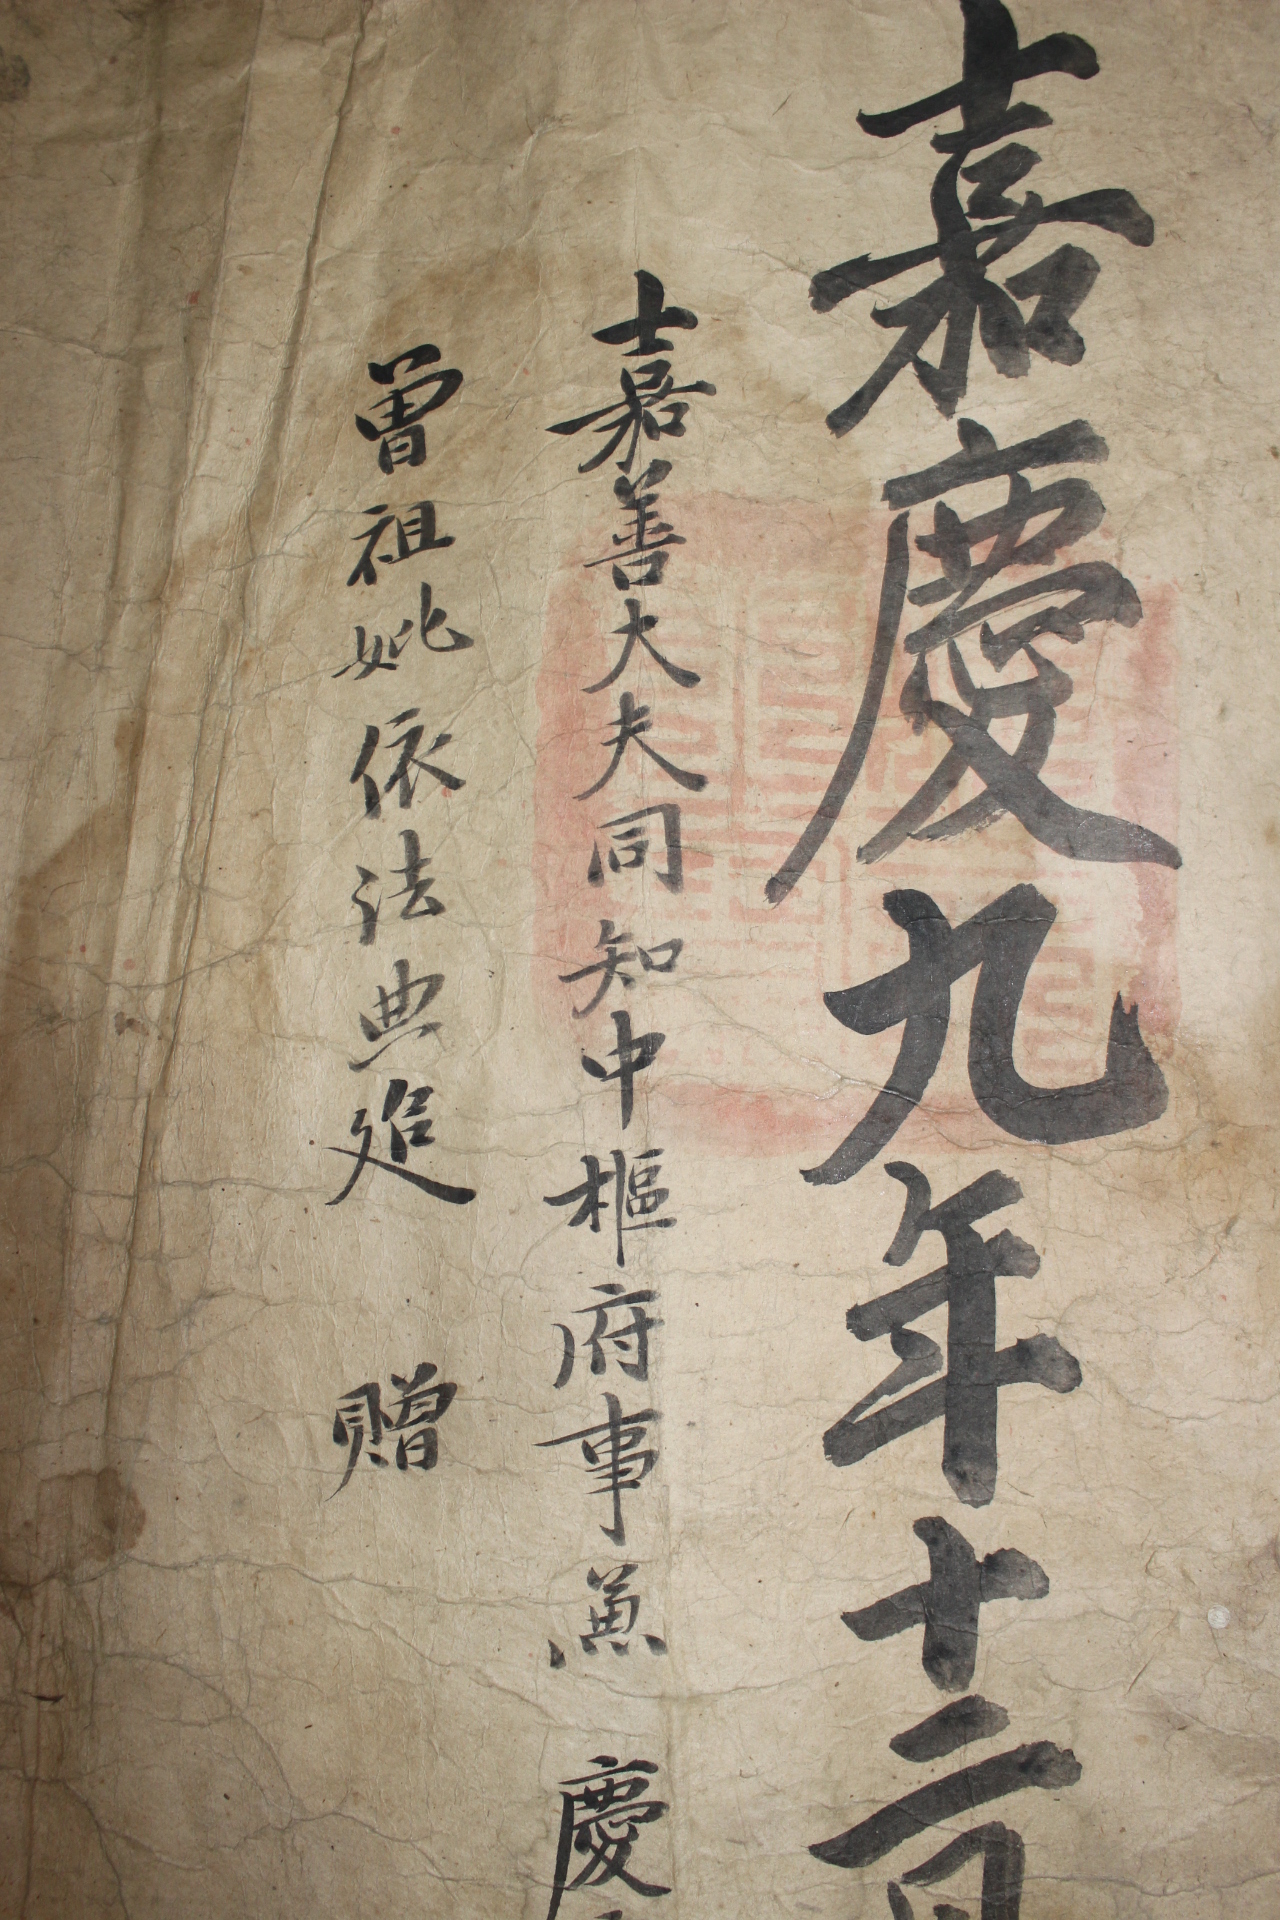 嘉慶九年十二月
嘉善大夫同知中樞府事兼　慶
曾祖妣依法典追　贈